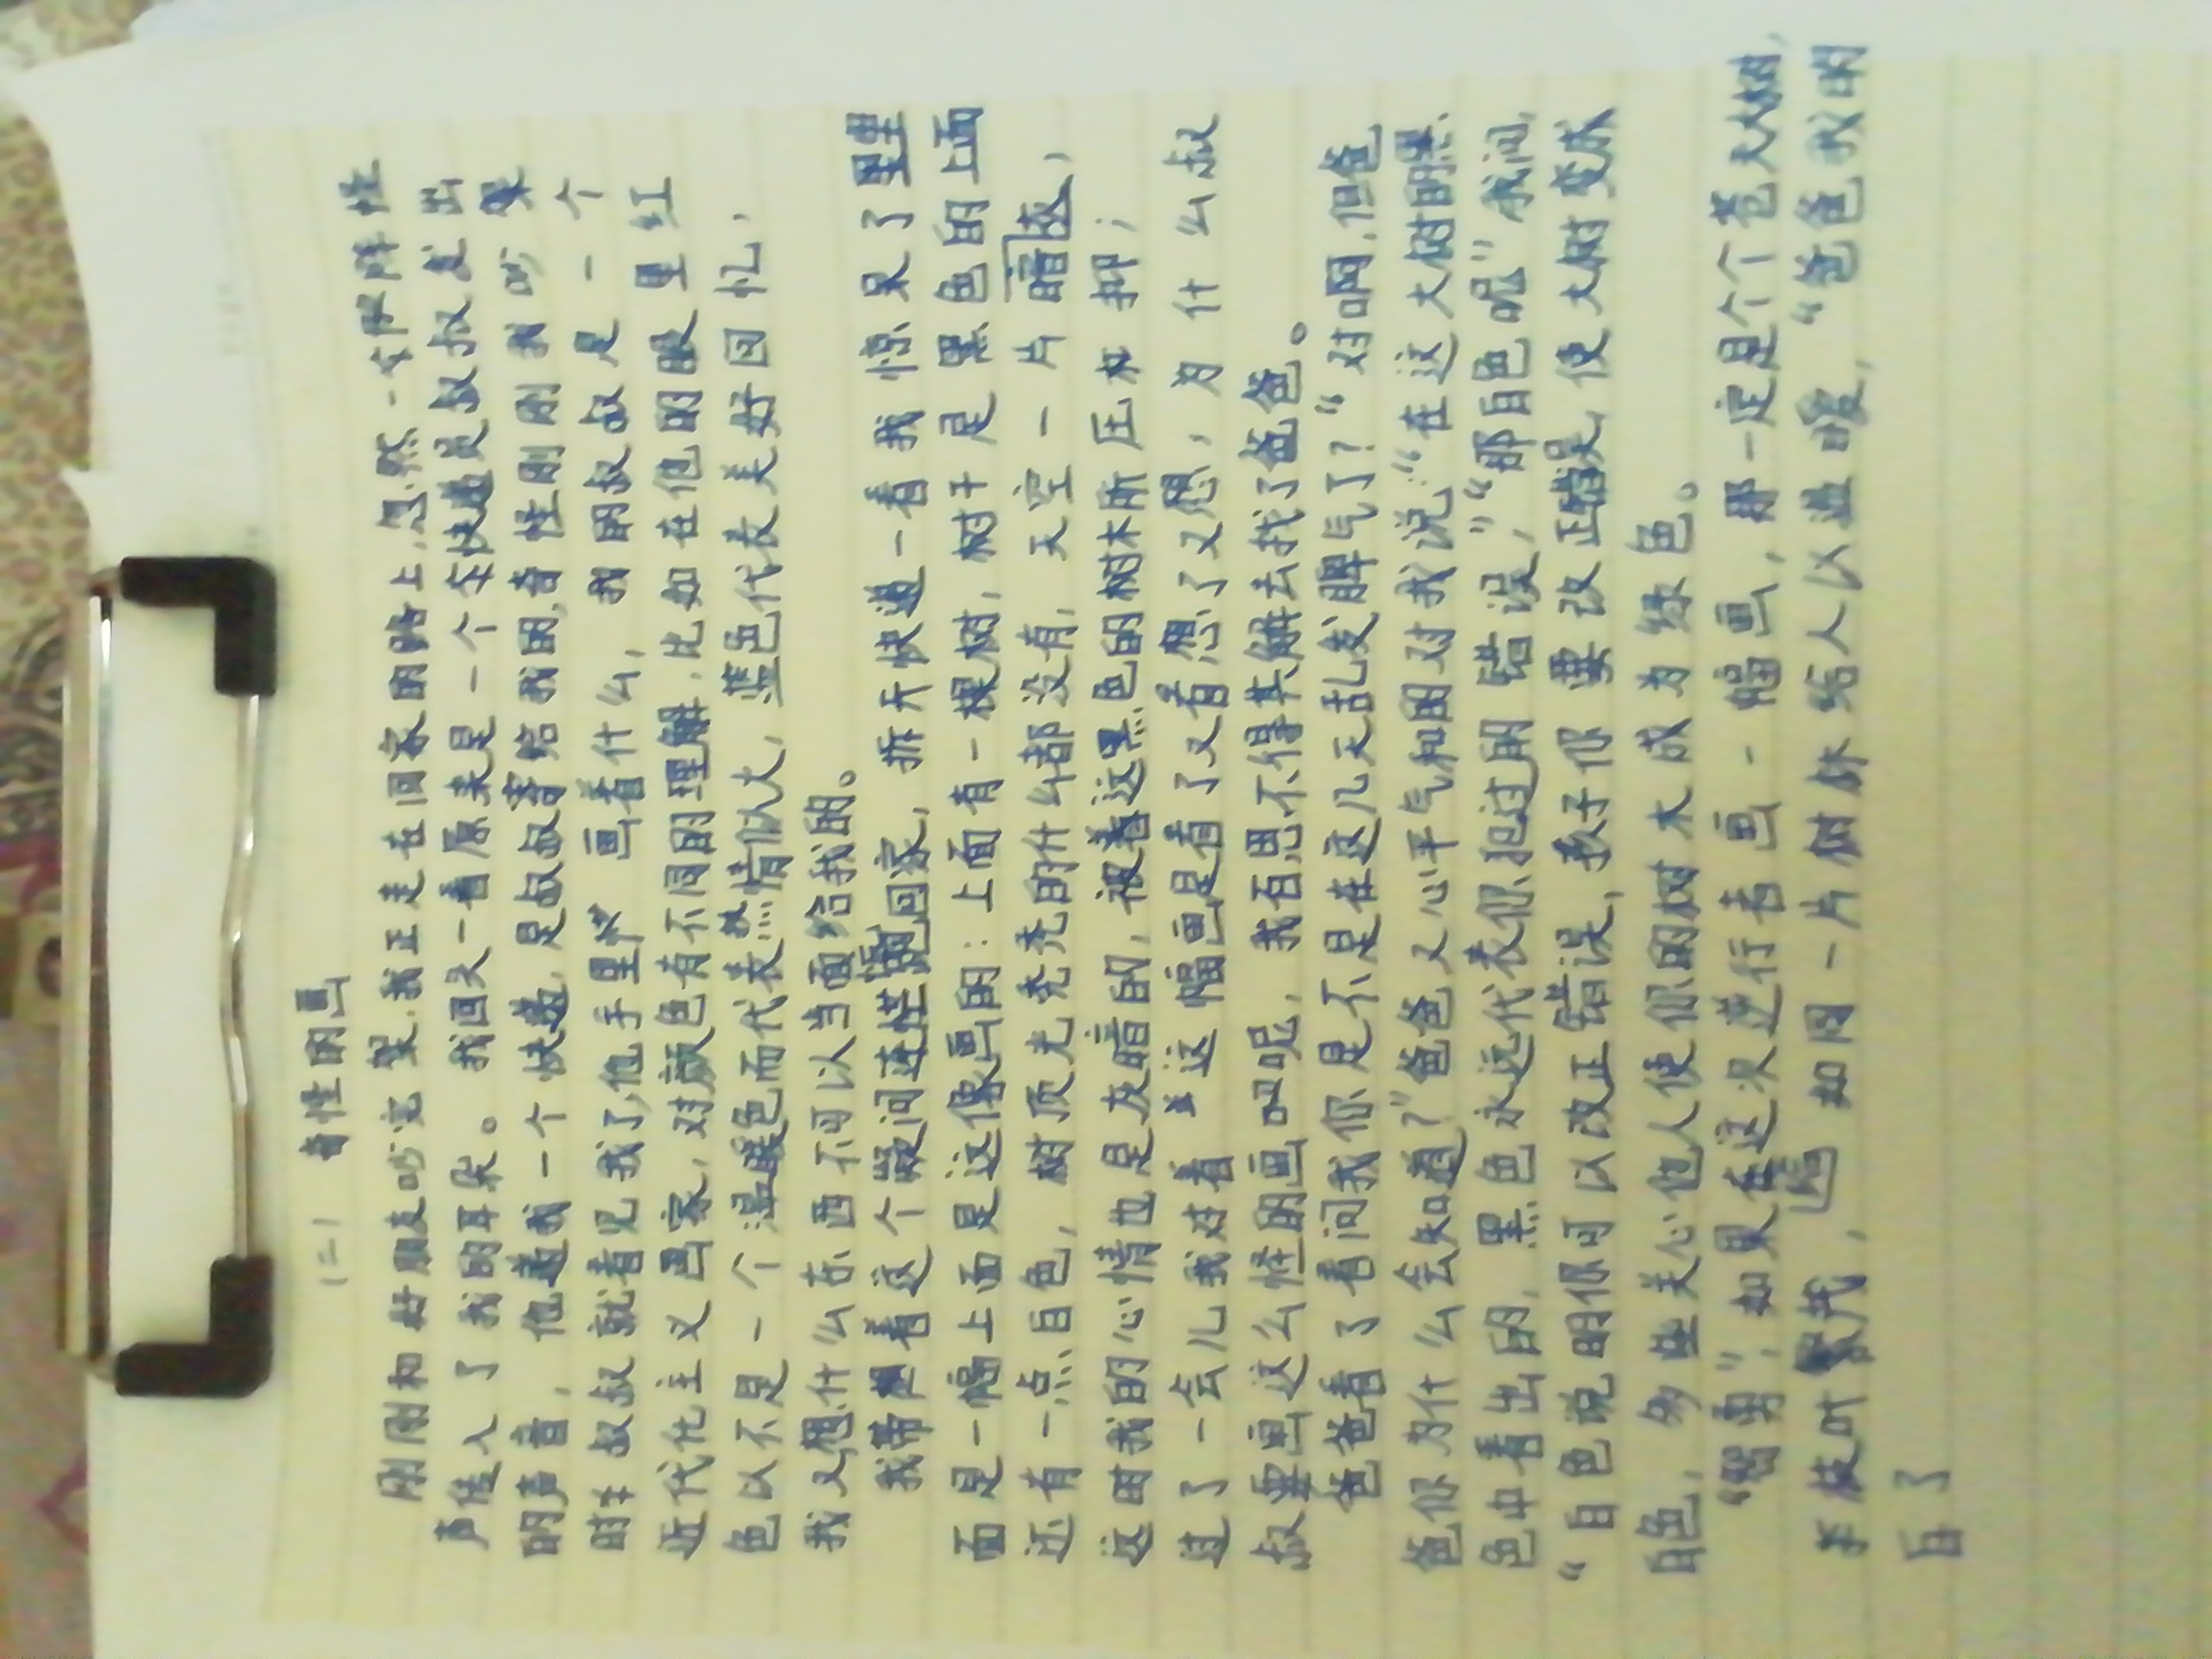 (二) 奇怪的画
刚刚和好朋友吵完架,我正走在回家的路上,忽然,一车阵阵怪
声传入了我的耳朵。我回头一看原来是一个车快递员叔叔发出
的声音,他递我一个快递,是叔叔寄给我的,奇怪刚刚我吵架
时叔叔就看见我了,他手里 画着什么,我的叔叔是一个
近代化主义画家,对颜色有不同的理解,比如在他的眼里红
色以不是一个温暖色而代表热情似火,蓝色代表美好回忆,
我又想什么东西不可以当面给我的。
我带着这个疑问连忙跑回家,拆开快递一看我惊呆了里
面是一幅上面是这像画的:上面有一棵树,树干是黑色的上面
还有一点白色,树顶光秃秃的什么都没有,天空一片暗灰,
这时我的心情也是灰暗的,被着这黑色的树木所压和抑;
过了一会儿我对着 这幅画是看了又看想了又想,为什么叔
叔要画这么怪的画呢,我百思不得其解去找了爸爸。
爸爸看了看问我你是不是在这几天乱发脾气了?“对啊,但爸
爸你为什么会知道?”爸爸又心平气和的对我说:“在这大树的黑
色中看出的,黑色永远代表你犯过的错误,”“那白色呢”我问,
“白色说明你可以改正错误,孩子你要改正错误,使大树变灰
白色,多些关心他人使你的树木成为绿色。
“智勇”,如果在这次逆行者画一幅画,那一定是个个苍天大树,
枝叶繁茂, 如同一片树林给人以温暖,“爸爸我明
白了